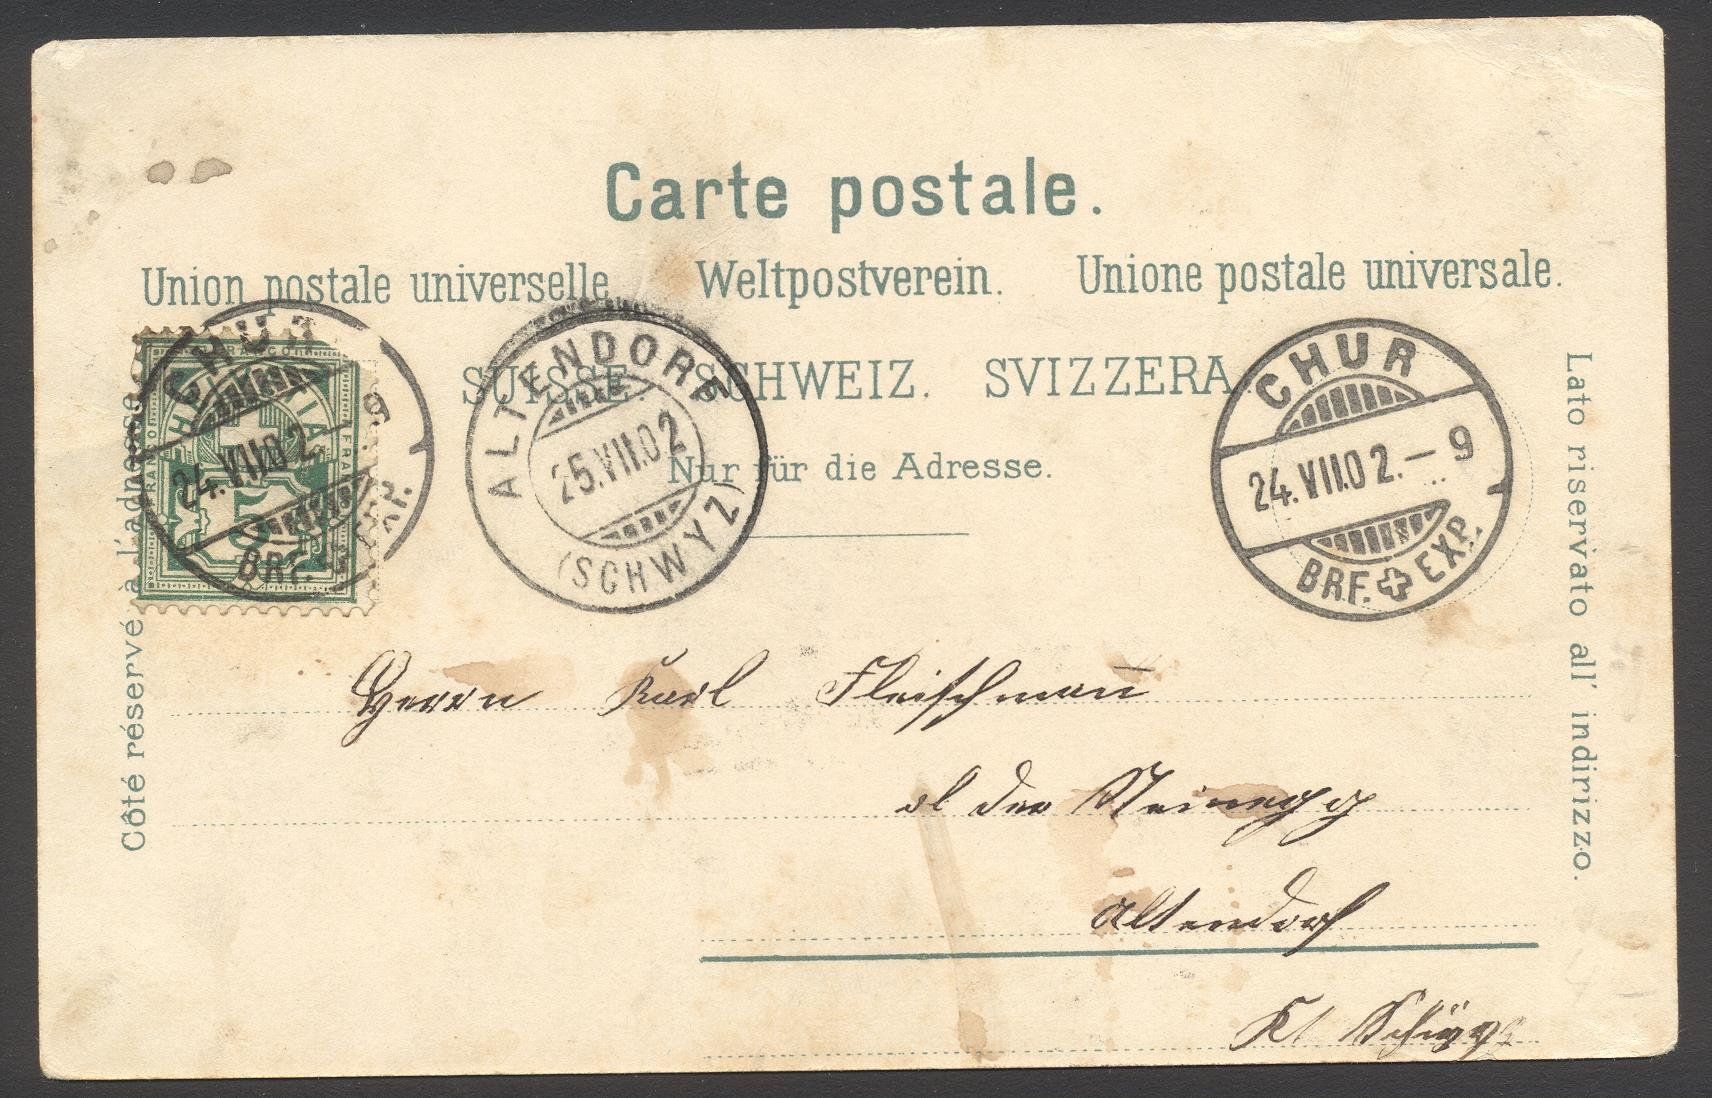 Carte postale.
Union postale universelle. Weltpostverein. Unione postale universale.
SUISSE. SCHWEIZ. SVIZZERA.
Nur für die Adresse.
Côté réservé à l'adresse.
Lato riservato all' indirizzo.
HELVETIA
FRANCO
5
CHUR
24.VII.02.–9
BRF. EXP.
ALTENDORF
25.VII.02
(SCHWYZ)
CHUR
24.VII.02.–9
BRF. EXP.
Herrn Karl Fleischmañ
der Steinegg
Altendorf
Kt Schwyz